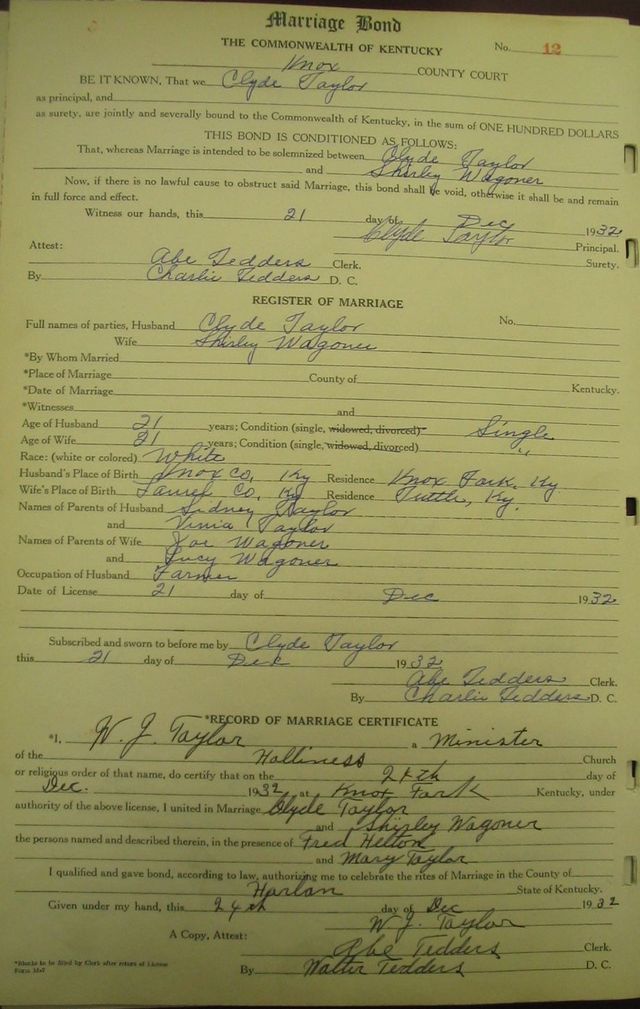 Marriage Bond
THE COMMONWEALTH OF KENTUCKY No. 12
Knox COUNTY COURT
BE IT KNOWN, That we Clyde Taylor
as principal, and
as surety, are jointly and severally bound to the Commonwealth of Kentucky, in the sum of ONE HUNDRED DOLLARS
THIS BOND IS CONDITIONED AS FOLLOWS:
That, whereas Marriage is intended to be solemnized between Clyde Taylor
and Shirley Wagoner
Now, if there is no lawful cause to obstruct said Marriage, this bond shall be void, otherwise it shall be and remain
in full force and effect.
Witness our hands, this 21 day of Dec 1932
Clyde Taylor Principal.
Attest: Surety.
Abe Tedders Clerk.
By Charlie Tedders D. C.
REGISTER OF MARRIAGE
Full names of parties, Husband Clyde Taylor No.
Wife Shirley Wagoner
*By Whom Married
*Place of Marriage County of Kentucky.
*Date of Marriage
*Witnesses and
Age of Husband 21 years; Condition (single, widowed, divorced) Single
Age of Wife 21 years; Condition (single, widowed, divorced) "
Race: (white or colored) White
Husband's Place of Birth Knox Co, Ky Residence Knox Fork, Ky
Wife's Place of Birth Laurel Co, Ky Residence Tuttle, Ky.
Names of Parents of Husband Sidney Taylor
and Vinia Taylor
Names of Parents of Wife Joe Wagoner
and Lucy Wagoner
Occupation of Husband Farmer
Date of License 21 day of Dec 1932
Subscribed and sworn to before me by Clyde Taylor
this 21 day of Dec 1932
Abe Tedders Clerk.
By Charlie Tedders D. C.
*RECORD OF MARRIAGE CERTIFICATE
*I, W. J. Taylor a Minister
of the Holliness Church
or religious order of that name, do certify that on the 24th day of
Dec. 1932 at Knox Fork Kentucky, under
authority of the above license, I united in Marriage Clyde Taylor
and Shirley Wagoner
the persons named and described therein, in the presence of Fred Helton
and Mary Taylor
I qualified and gave bond, according to law, authorizing me to celebrate the rites of Marriage in the County of
Harlan State of Kentucky.
Given under my hand, this 24th day of Dec 1932
W. J. Taylor
A Copy, Attest: Abe Tedders Clerk.
By Walter Tedders D. C.
*Blanks to be filled by Clerk after return of License